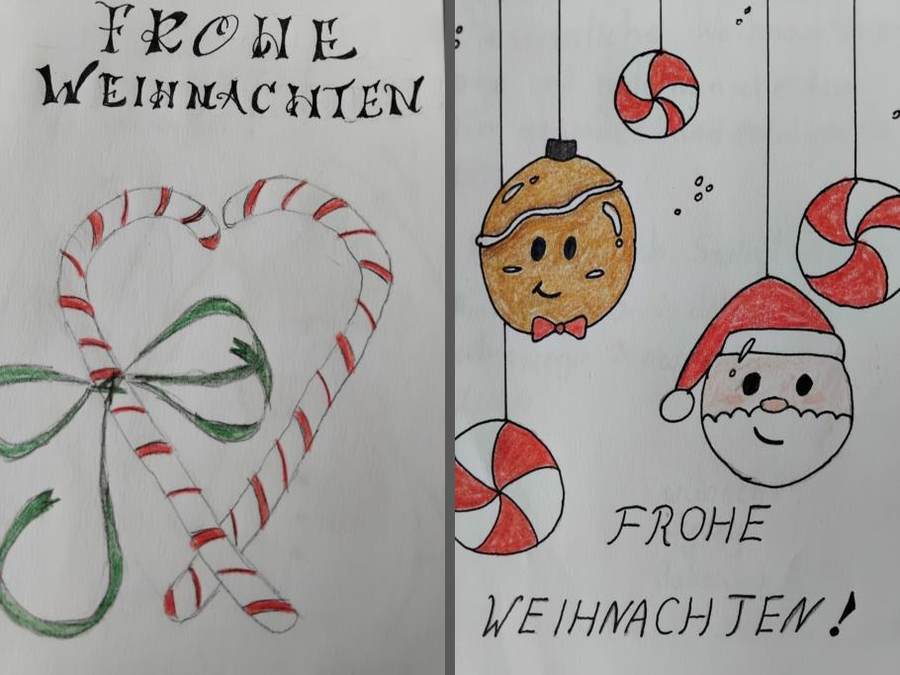 FROHE
WEIHNACHTEN
FROHE
WEIHNACHTEN!